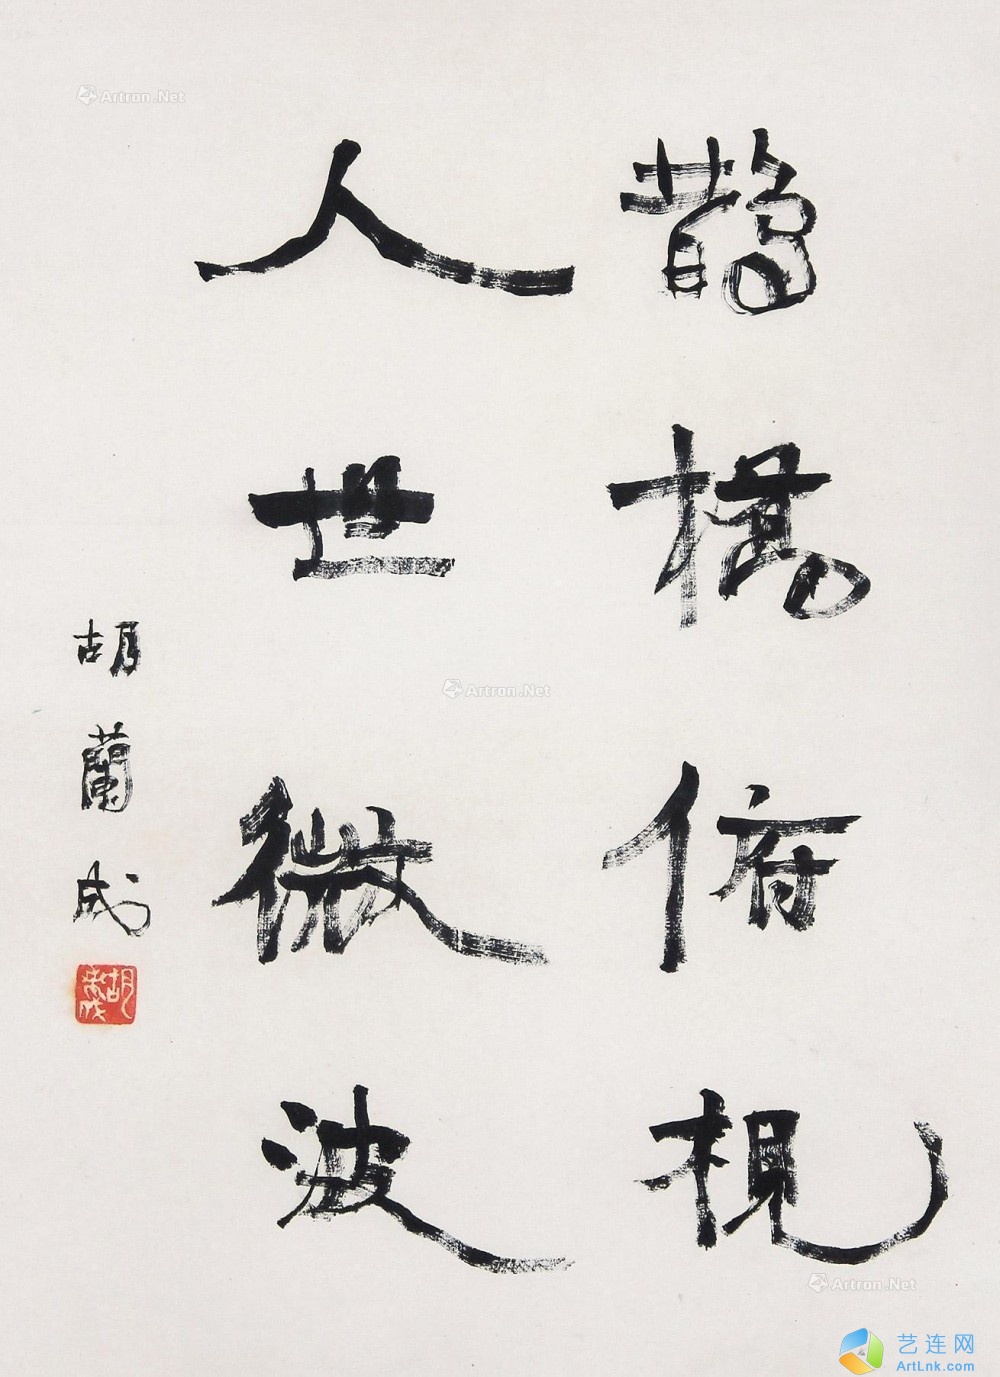 鵲橋俯視
人世微波
胡蘭成
胡蘭成
Artron.Net
Artron.Net
Artron.Net
艺连网
ArtLnk.com